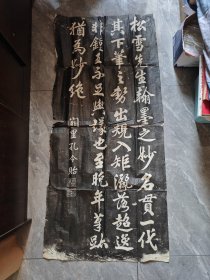 松雪先生翰墨之妙名貫一代
其下董之勢出規入矩瀟落超逸
非鍾王不足與隊也至晩年筆
猶爲妙絶
闕里孔令貽